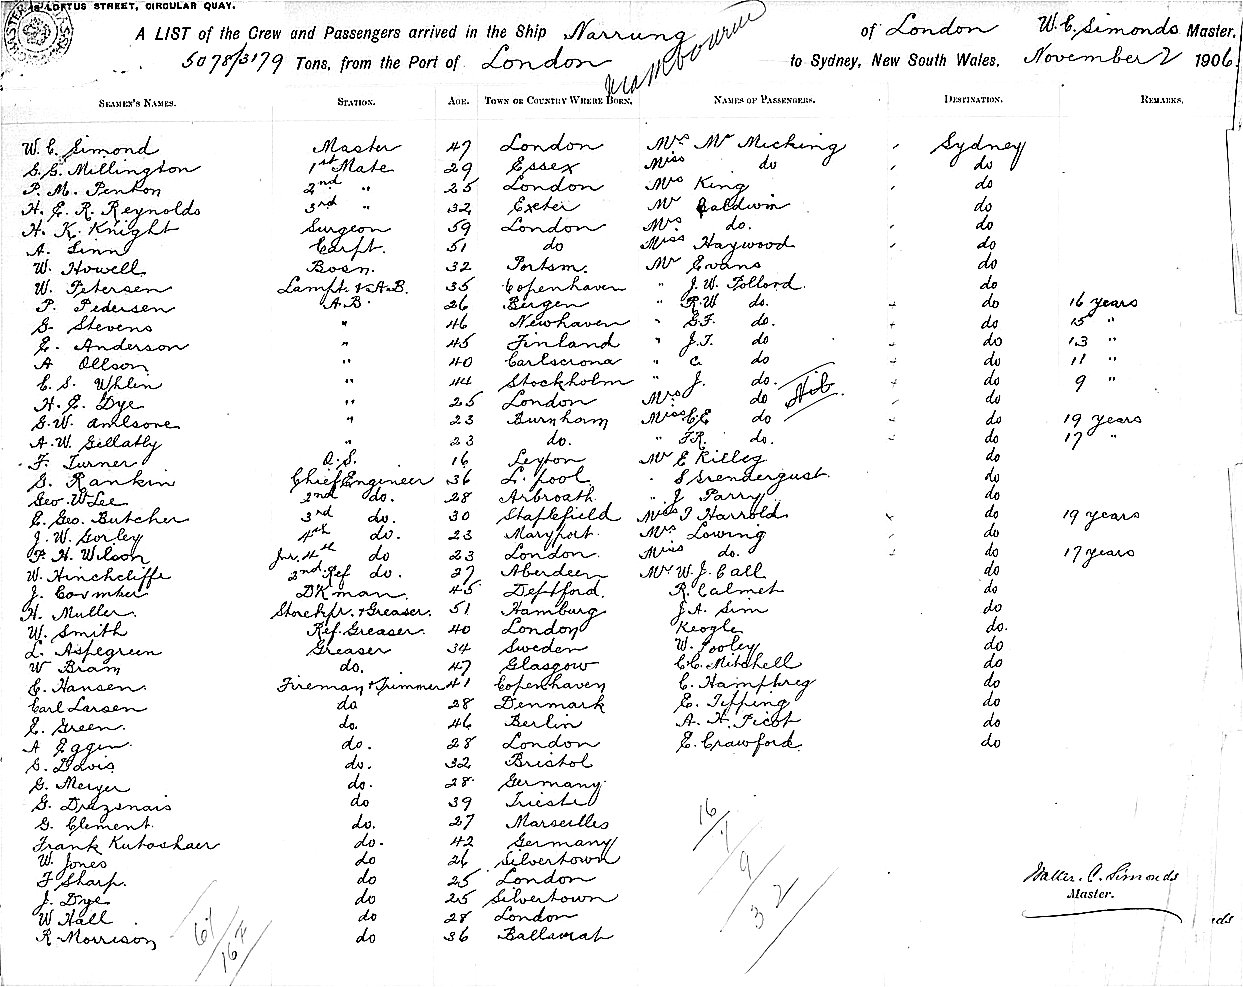 LOFTUS STREET, CIRCULAR QUAY.
A LIST of the Crew and Passengers arrived in the Ship Narrung of London W. C. Simonds Master,
5078/3179 Tons, from the Port of London to Sydney, New South Wales, November 2 1906.
SEAMEN'S NAMES. STATION. AGE. TOWN OR COUNTRY WHERE BORN. NAMES OF PASSENGERS. DESTINATION. REMARKS.
W. C. Simond Master 47 London Mrs Mc Micking Sydney
S. G. Millington 1st Mate 29 Essex Miss do do
P. M. Penton 2nd " 25 London Mrs King do
H. E. R. Reynolds 3rd " 32 Exeter Mr Baldwin do
H. K. Knight Surgeon 59 London Mrs. do. do
A. Sinn Carpt. 51 do Miss Haywood do
W. Howell Bosn. 32 Portsm. Mr Evans do
W. Petersen Lampt. & A.B. 35 Copenhaven " J. W. Pollord. do
P. Pedersen A.B. 26 Bergen " R.W do. do 16 years
G. Stevens " 46 Newhaven " G.F. do. do 15 "
E. Anderson " 45 Finland " J.T. do do 13 "
A Ollson " 40 Carlscrona " C. do do 11 "
C. S. Whlin " 44 Stockholm " J. do. do 9 "
H. E. Dye " 25 London Mrs do do
G. W. " 23 Burnham Miss C E do do 19 years
A. W. Gellatly " 23 do. " F.R. do. do 17 "
F. Turner O.S. 16 Leyton Mr E Killey do
G. Rankin Chief Engineer 36 L. pool. " S do
Geo. W. Lee 2nd do. 28 Arbroath " J Parry do
E. Geo. Butcher 3rd do. 30 Staplefield Miss I Harrold do 19 years
J. W. Gorley 4th do. 23 Maryport Mrs Lowing do
P. H. Wilson Jr. 4th do 23 London Miss do. do 17 years
W. Hinchcliffe 2nd Ref do. 27 Aberdeen Mr W. J. Call do
J. DKman. 45 Deptford. R. Calmet do
H. Muller. Storekpr. & Greaser. 51 Hamburg J. A. Sim do
W. Smith Ref. Greaser. 40 London Keogle do.
L. Aspegreen Greaser 34 Sweden W. Pooley do
W Bram do. 47 Glasgow C. C. Mitchell do
C. Hansen. Fireman & Trimmer 41 Copenhaven C. Hamphreg do
Carl Larsen do 28 Denmark E. Tipping do
E. Green. do. 46 Berlin A. H. Picot do
A Eggin do. 28 London E. Crawford. do
G. Davis do. 32 Bristol
G. Meyer do. 28 Germany
G. Drazenais do 39 Trieste
G. Clement. do. 27 Marseilles
Frank Kutoshaer do. 42 Germany
W. Jones do 26 Silvertown
F Sharp. do 25 London
J. Dye do 25 Silvertown
W Hall do 28 London
R Morrison do 36 Ballarat
16
7
9
32
61
Walter. C. Simonds
Master.